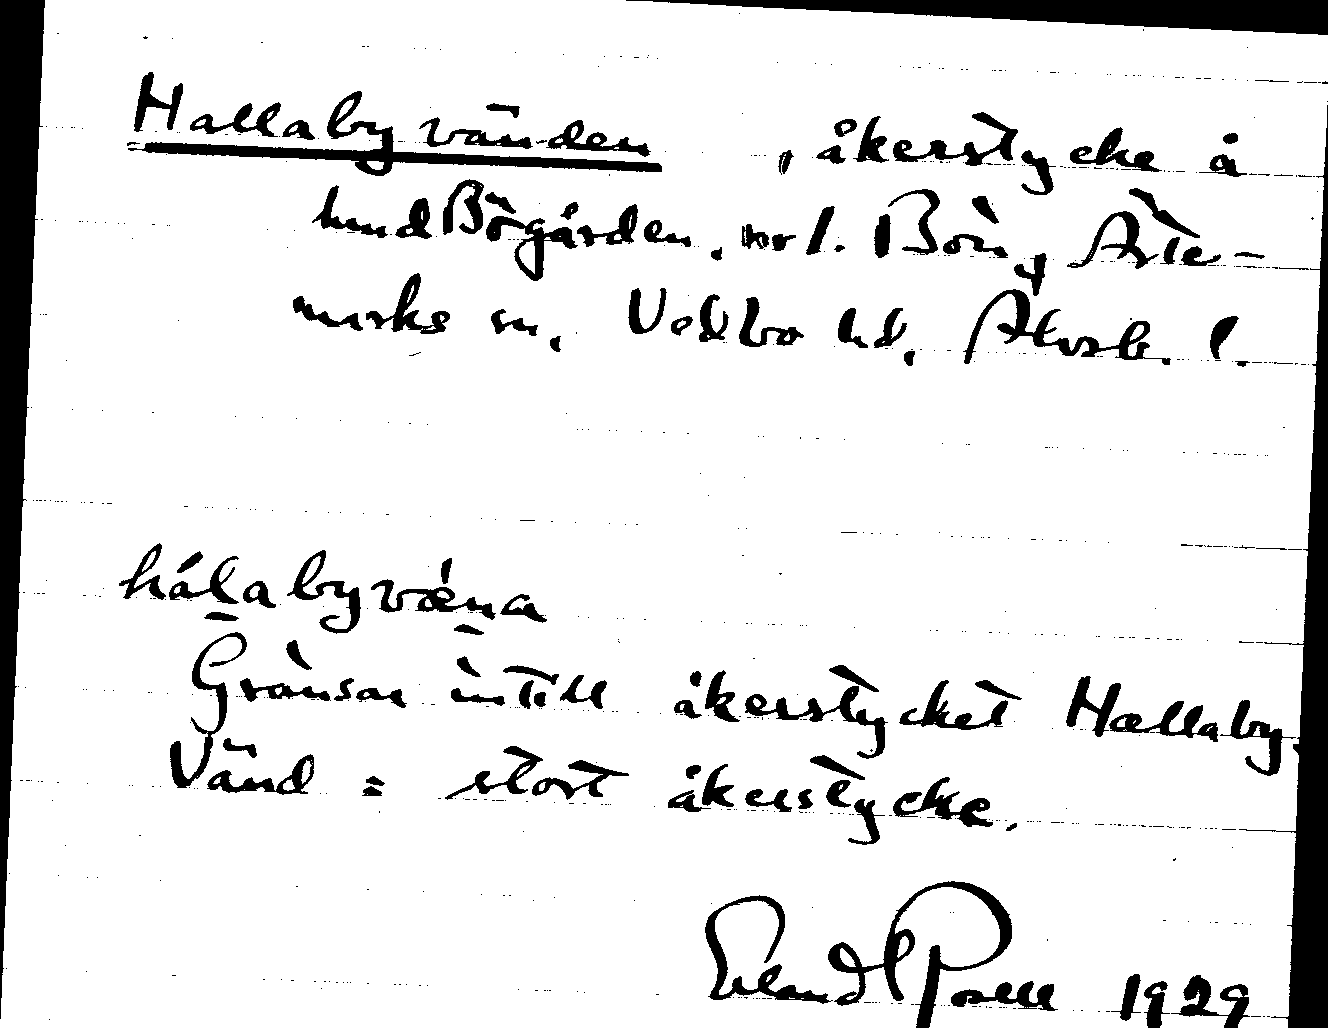 Hallabyvänden, åkerstycke å
hmd Bögården, nr 1. Bön, Ärte-
marks sn, Vedbo hd, Älvsb. l.
hálabyvǽna
Gränsar intill åkerstycket Hallaby.
Vänd = stort åkerstycke.
Erland Rosell 1929